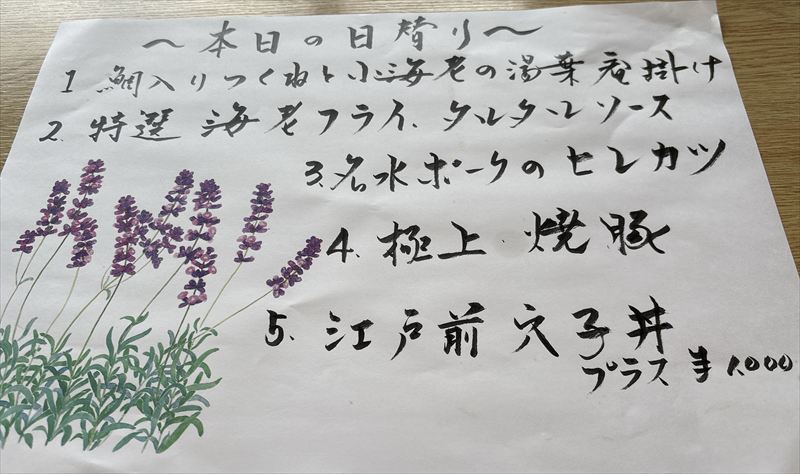 ～本日の日替り～
1 鯛入りつくねと小海老の湯葉庵掛け
2. 特選 海老フライ. タルタルソース
3. 名水ポークのヒレカツ
4. 極上 焼豚
5. 江戸前 穴子丼
プラス ¥1,000